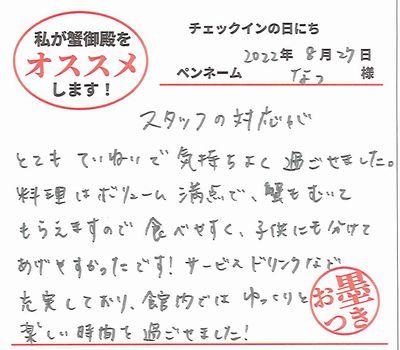 私が蟹御殿を
オススメ
します！
チェックインの日にち
2022年 8月27日
ペンネーム なつ 様
スタッフの対応が
とても ていねいで 気持ちよく 過ごせました。
料理は ボリューム 満点で、蟹も むいて
もらえますので 食べやすく、子供にも 分けて
あげやすかったです！ サービスドリンクなど
充実しており、館内では ゆっくりと
楽しい時間を 過ごせました！
お墨つき